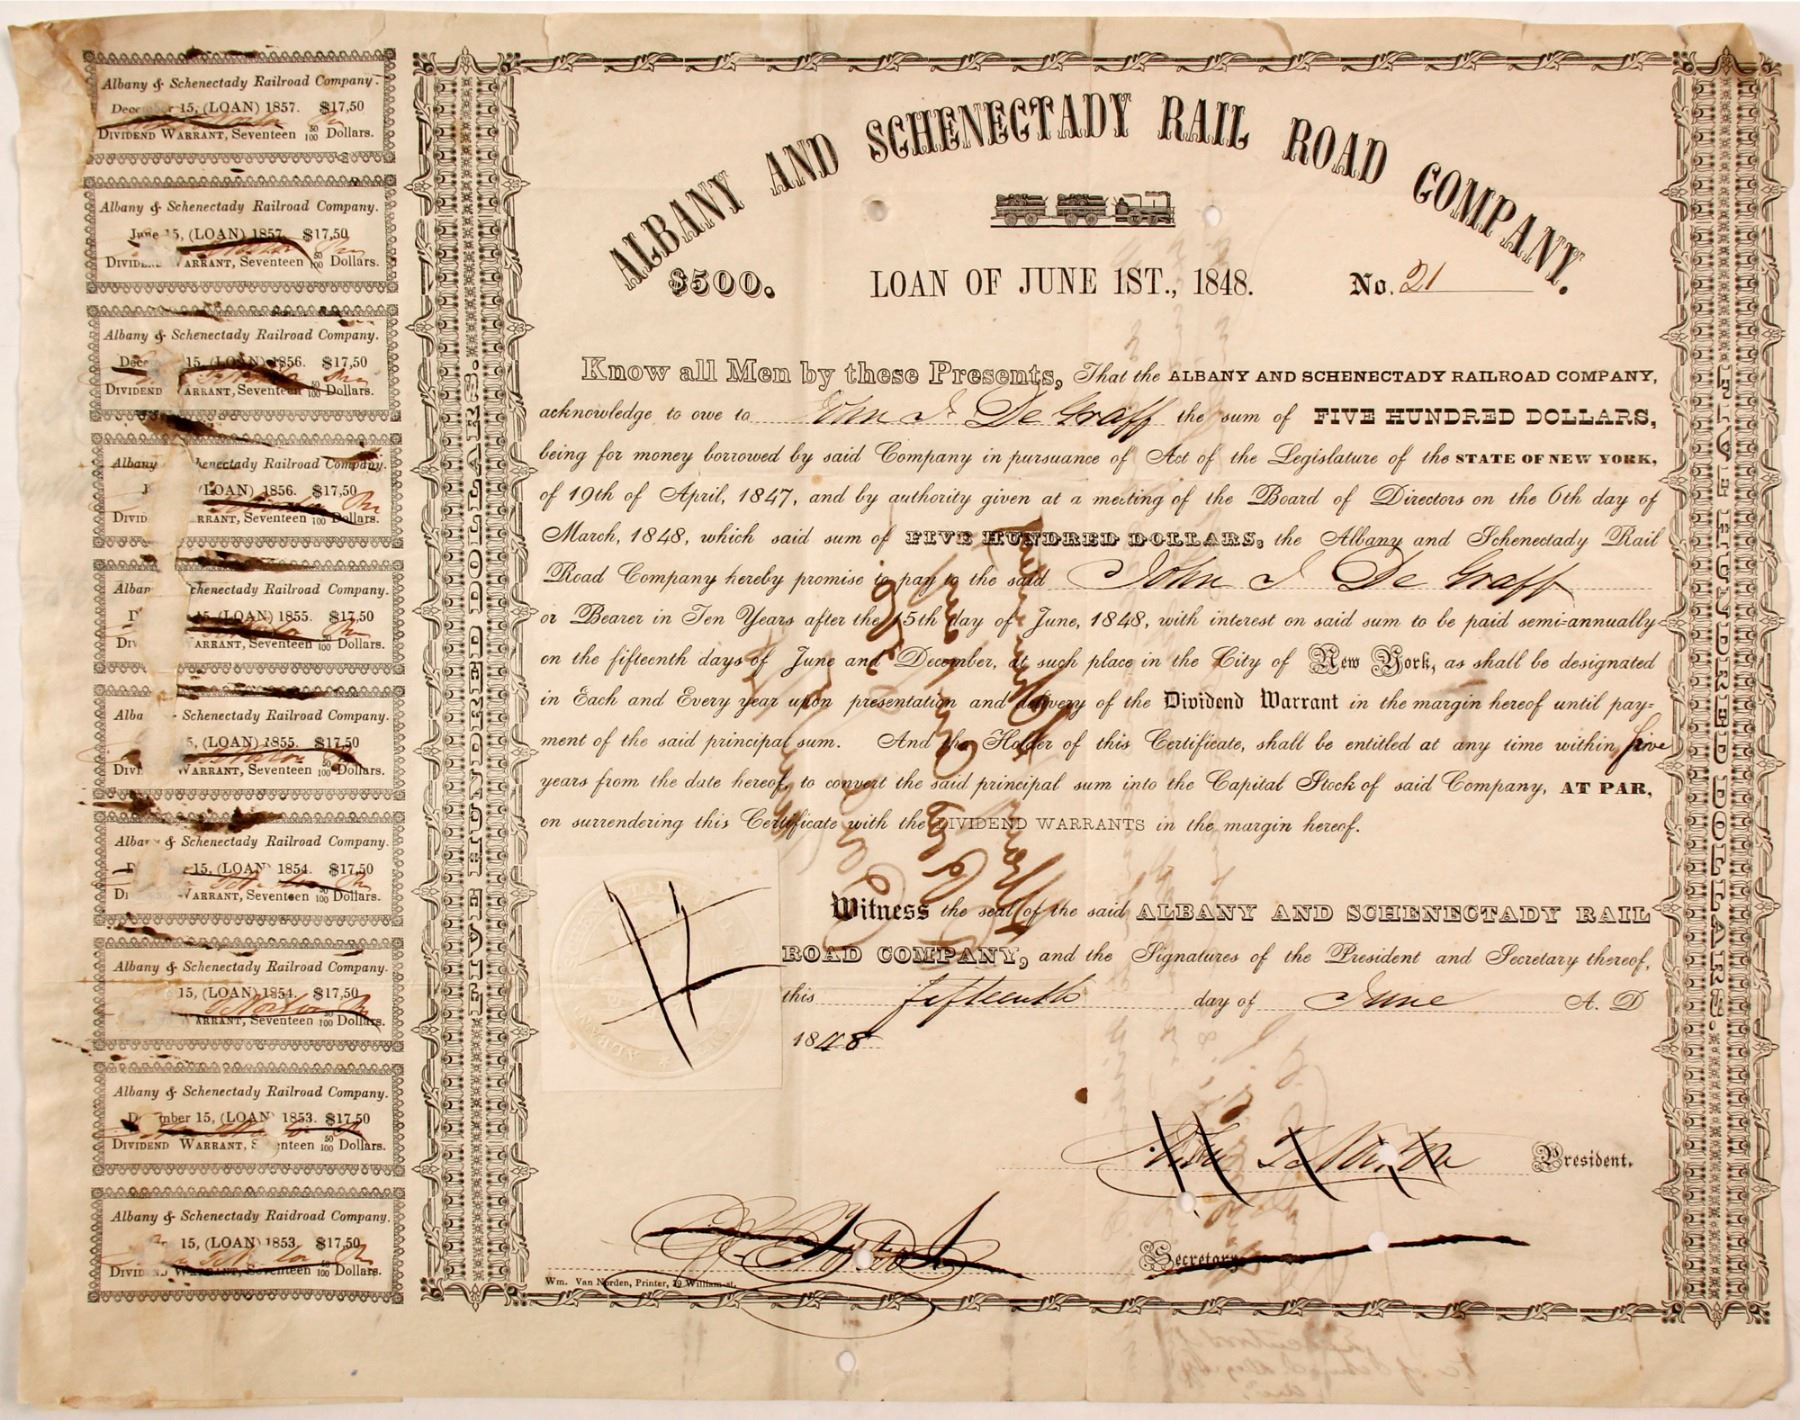 Albany & Schenectady Railroad Company.
15, (LOAN) 1857. $17,50
DIVIDEND WARRANT, Seventeen 50/100 Dollars.
Albany & Schenectady Railroad Company.
June 15, (LOAN) 1857. $17,50
WARRANT, Seventeen 50/100 Dollars.
Albany & Schenectady Railroad Company.
15, (LOAN) 1856. $17,50
DIVIDEND WARRANT, Seventeen 50/100 Dollars.
Albany Railroad Company.
(LOAN) 1856. $17,50
Seventeen 50/100 Dollars.
Railroad Company.
15, (LOAN) 1855. $17,50
WARRANT, Seventeen 50/100 Dollars.
Schenectady Railroad Company.
(LOAN) 1855. $17,50
WARRANT, Seventeen 50/100 Dollars.
& Schenectady Railroad Company.
15, (LOAN) 1854. $17,50
WARRANT, Seventeen 50/100 Dollars.
Albany & Schenectady Railroad Company.
15, (LOAN) 1854. $17,50
WARRANT, Seventeen 50/100 Dollars.
Albany & Schenectady Railroad Company.
15, (LOAN) 1853. $17,50
DIVIDEND WARRANT, 50/100 Dollars.
Albany & Schenectady Raidroad Company.
15, (LOAN) 1853. $17,50
WARRANT, Seventeen 50/100 Dollars.
FIVE HUNDRED DOLLARS.
ALBANY AND SCHENECTADY RAIL ROAD COMPANY.
$500.
LOAN OF JUNE 1ST., 1848.
No. 21
Know all Men by these Presents, That the ALBANY AND SCHENECTADY RAILROAD COMPANY,
acknowledge to owe to John I. De Graff the sum of FIVE HUNDRED DOLLARS,
being for money borrowed by said Company in pursuance of Act of the Legislature of the STATE OF NEW YORK,
of 19th of April, 1847, and by authority given at a meeting of the Board of Directors on the 6th day of
March, 1848, which said sum of FIVE HUNDRED DOLLARS, the Albany and Schenectady Rail
Road Company hereby promise to pay to the said John I De Graff
or Bearer in Ten Years after the 15th day of June, 1848, with interest on said sum to be paid semi-annually
on the fifteenth days of June and December, at such place in the City of New York, as shall be designated
in Each and Every year upon presentation and delivery of the Dividend Warrant in the margin hereof until pay-
ment of the said principal sum. And the Holder of this Certificate, shall be entitled at any time within five
years from the date hereof, to convert the said principal sum into the Capital Stock of said Company, AT PAR,
on surrendering this Certificate with the DIVIDEND WARRANTS in the margin hereof.
Witness the seal of the said ALBANY AND SCHENECTADY RAIL
ROAD COMPANY, and the Signatures of the President and Secretary thereof,
this fifteenth day of June A. D
1848
President.
Secretary
Wm. Van Norden, Printer, 39 William-st.
FIVE HUNDRED DOLLARS.